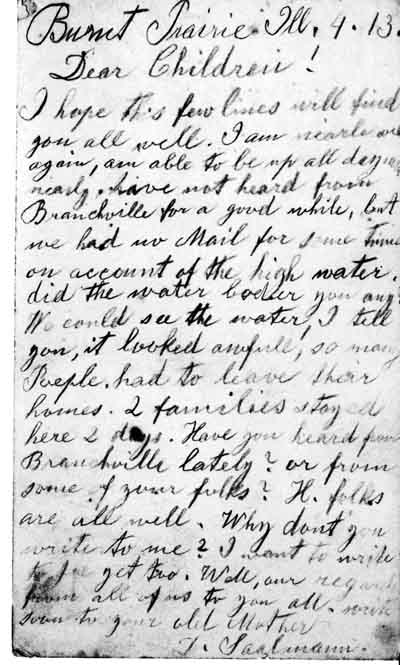 Burnt Prairie Ill. 4. 13.
Dear Children!
I hope this few lines will find
you all well. I am nearle
again, am able to be up all day
nearly. have not heard from
Branchville for a good while, but
we had no Mail for some time
on account of the high water.
did the water boder you any?
We could see the water, I tell
you, it looked awfull, so many
Poeple. had to leave their
homes. 2 families stayed
here 2 days. Have you heard from
Branchville lately? or from
some of your folks? H. folks
are all well. Why dont you
write to me? I want to write
to Joe yet too. Well, our regards
from all of us to you all. write
soon to your old Mother
Saalmann.